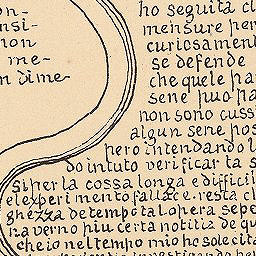 on-
nsi-
non
me-
n dime-
ho seguita
mensure per
curiosament
se defende
che quele pa
sene puo pa
non sono cussi
alcun sene pos
pero intendando
do in tuto verificar ta
si per la cossa longa e difficil
el experimento fallace. resta ch
ghezza de tempo tal opera sepe
na verno piu certa notitia de qu
che io nel tempo mio ho sole cita